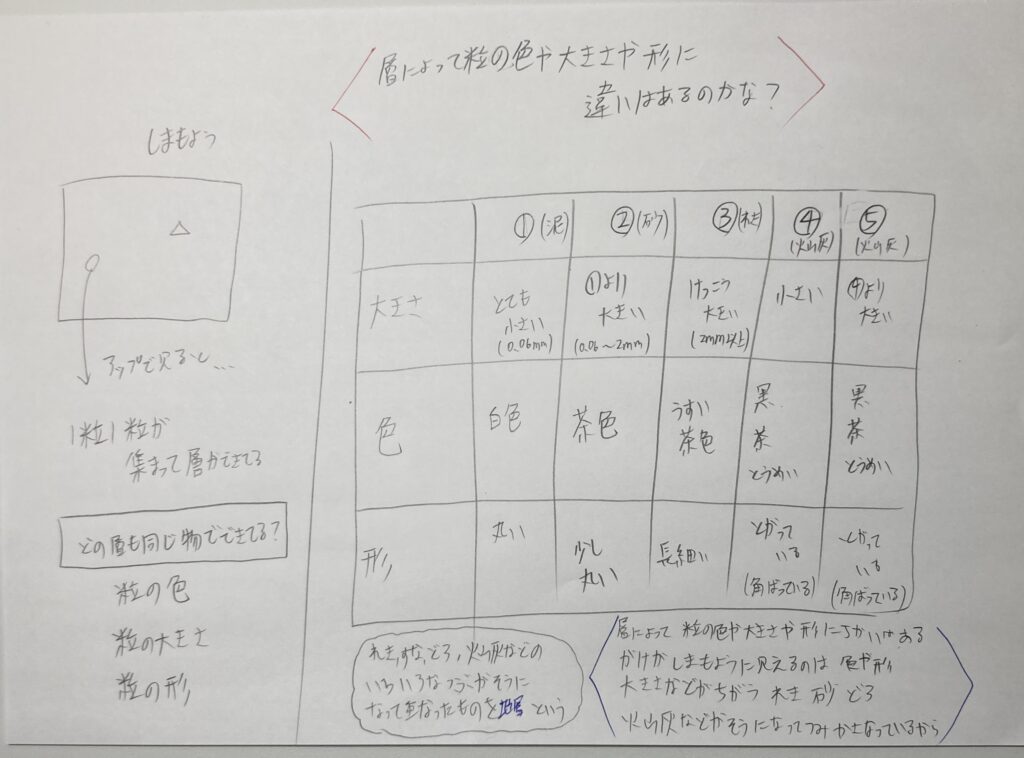 層によって粒の色や大きさや形に
違いはあるのかな?
しまもよう
アップで見ると...
1粒1粒が
集まって層ができてる
どの層も同じ物でできてる?
粒の色
粒の大きさ
粒の形
① (泥) ② (砂) ③ ④ (火山灰) ⑤ (火山灰)
大きさ
とても
小さい
(0.06mm)
①より
大きい
(0.06〜2mm)
けっこう
大きい
(2mm以上)
小さい
④より
大きい
色
白色
茶色
うすい
茶色
黒
茶
とうめい
黒
茶
とうめい
形
丸い
少し
丸い
長細い
とがって
いる
(角ばっている)
とがって
いる
(角ばっている)
れき、すな、どろ、火山灰などの
いろいろなつぶがそうに
なって重なったものを地層という
層によって 粒の色や大きさや形にちがいはある
がけがしまもように見えるのは 色や形
大きさなどがちがう れき 砂 どろ
火山灰などがそうになってつみかさなっているから